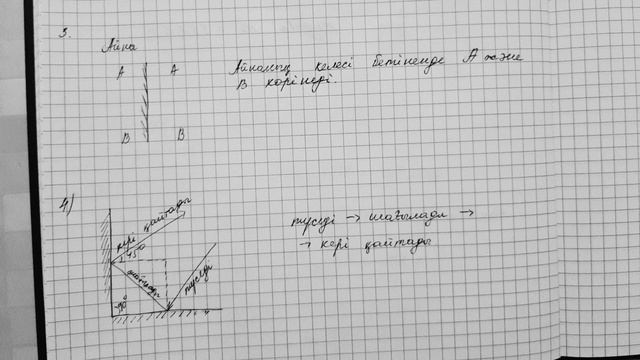 3.
Айна
A A
Айнаның келесі бетіненде A және
B көрінеді.
B B
4)
кері қайтады
45°
шағылады
түседі
90°
түседі → шағылады →
→ кері қайтады